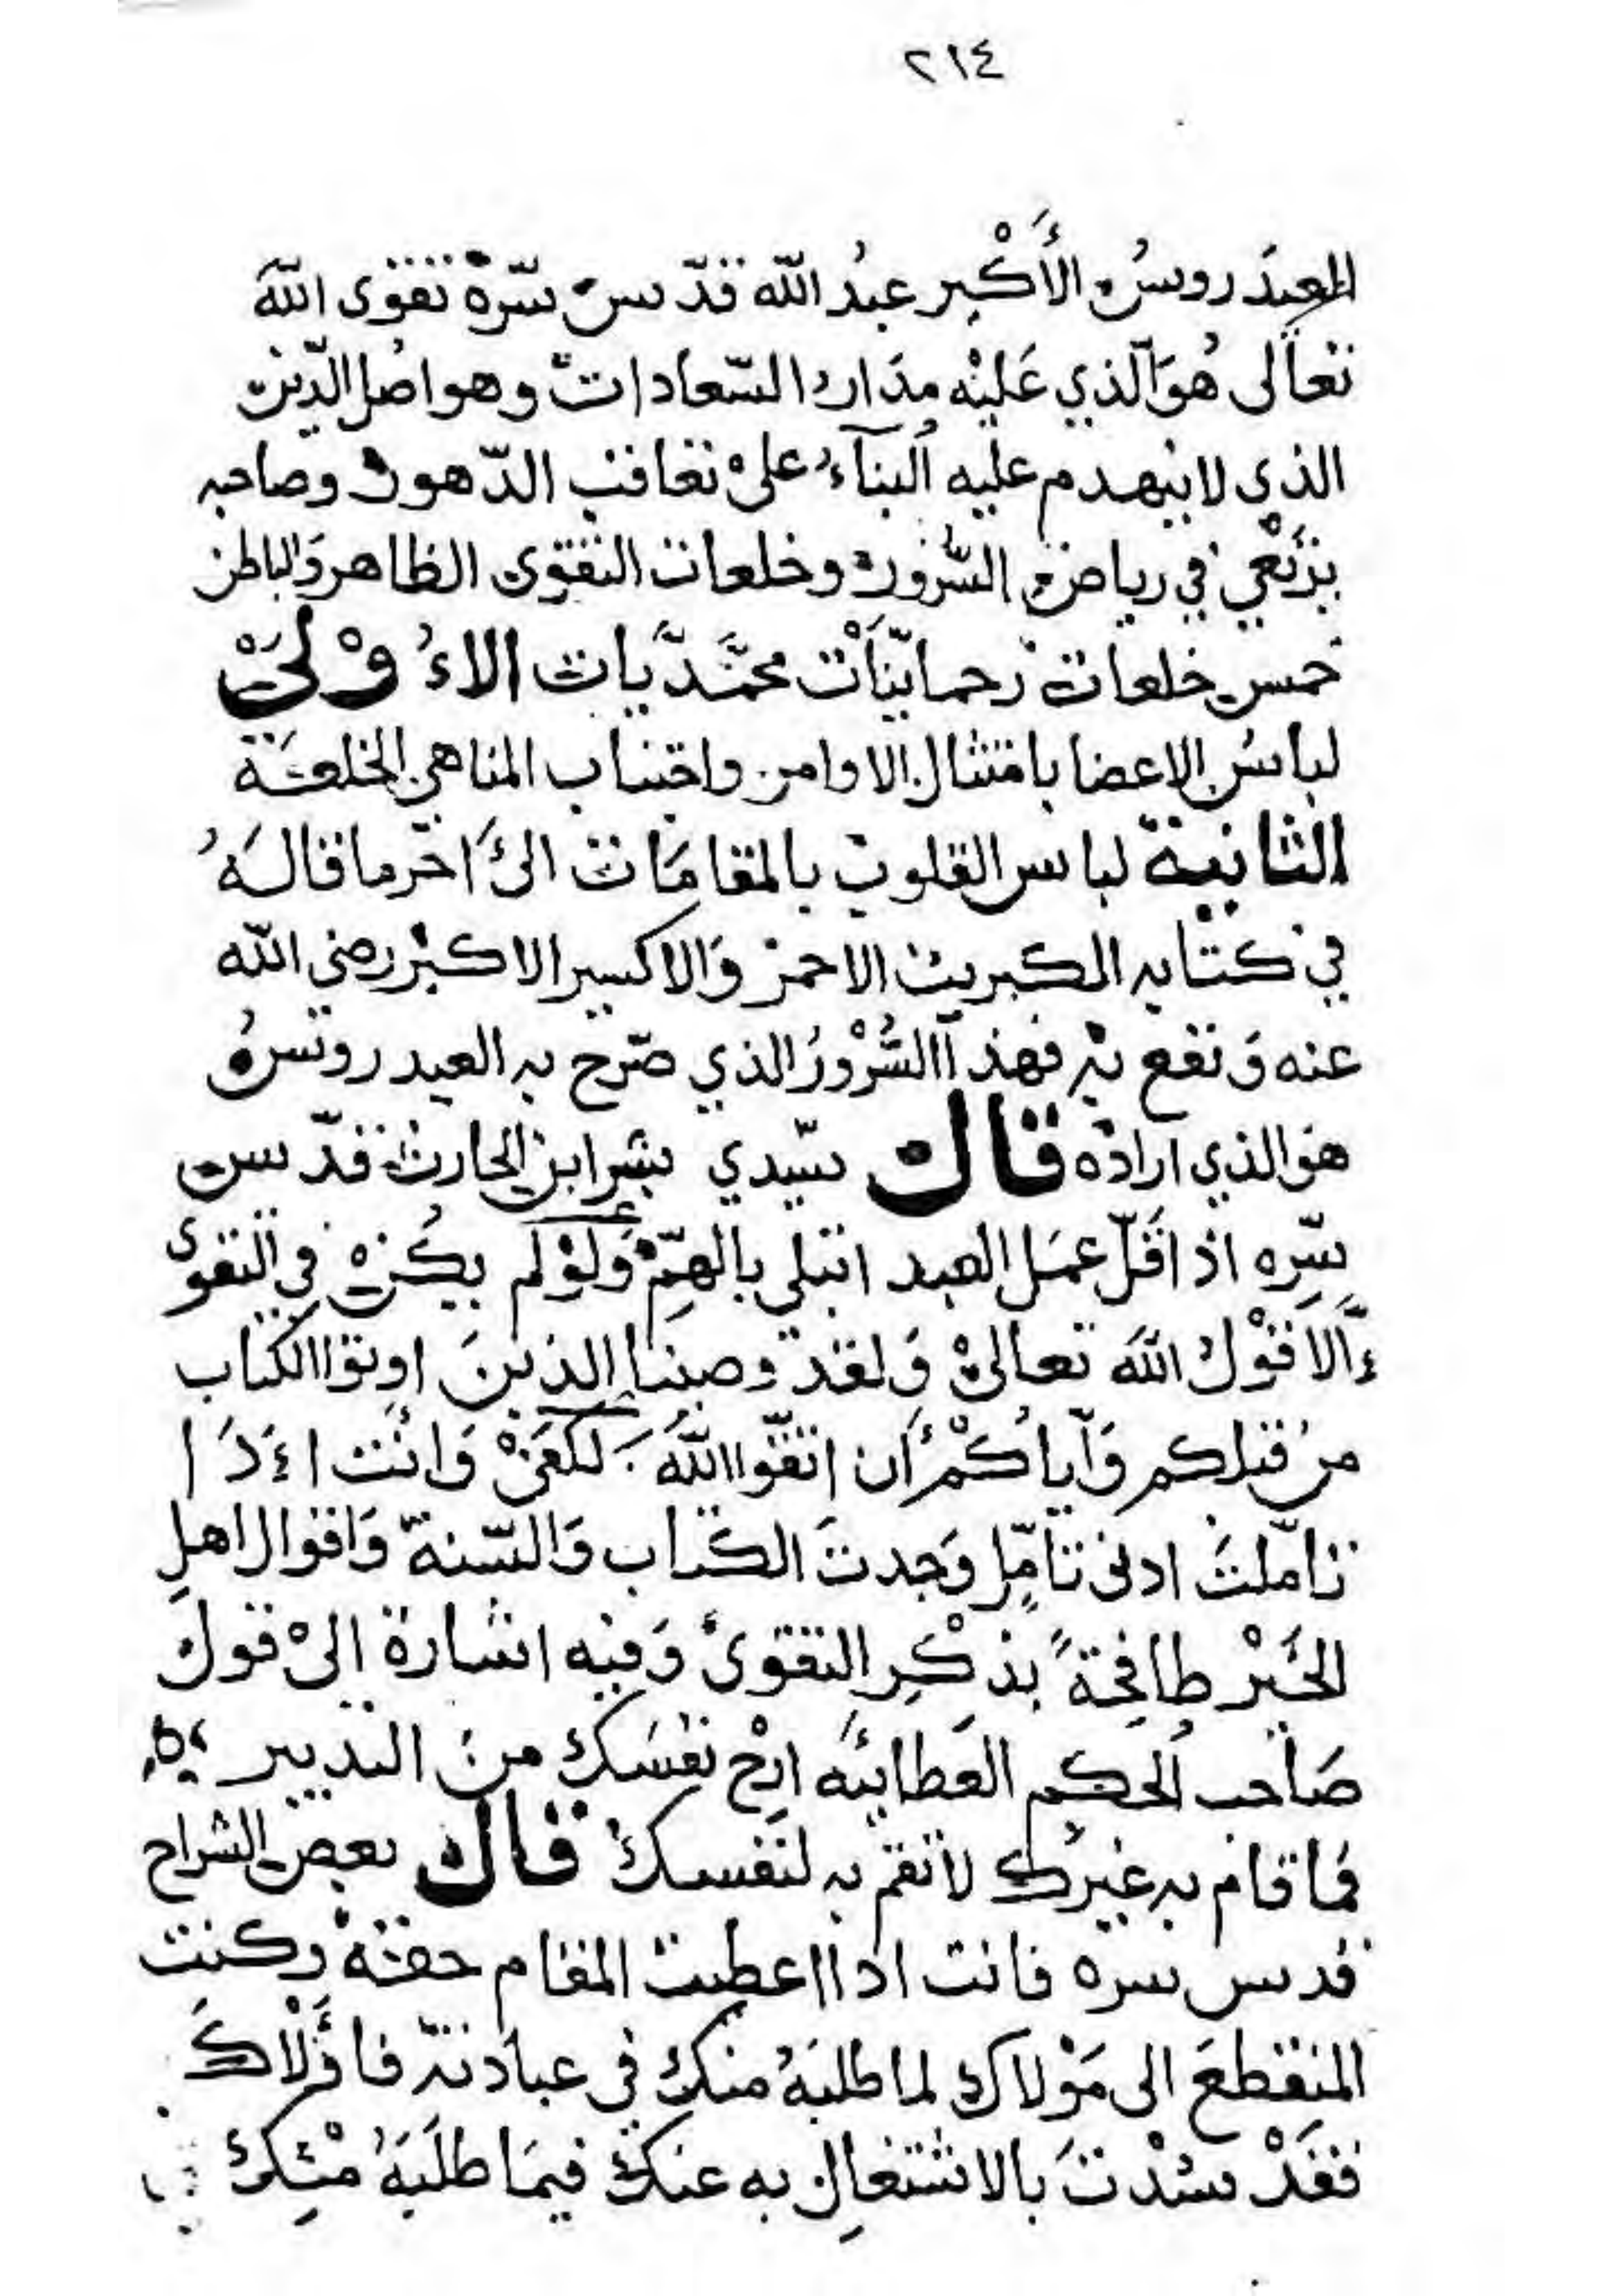 ٢١٤
العيدَروسُ الأَكْبر عبدُ اللّه قدّس سّرهْ تقوَى اللّهَ
تعاَلى هُوَ الّذي عَليْه مدَار السّعادات وهو اصُل الدّين
الذي لا ينهدم عليه اُلبنآءُ علىْ تعاقب الدّهور وصاحبه
يرْتَعي في رياض السُّرور وخلعات التقوى الظاهر وَالباطن
خمس خلعات رحماينّاَتْ محمَّدَّيات الاءُ وْلىَْ
لباسُ الاعضا بامتثال الاوامر واجتناب المناهي الخلعَة
الثانية لباس القلوب بالمقامَات الىَ اخّر ما قالَهُ
في كتابه الكبريت الاحمر وَالاكسير الاكبر رضي اللّه
عنه وَنفع به فهذآ السُّرْورُ الذي صّرح به العيدروسُ
هوَ الذي ارادَه قال سّيدي بشر ابن الحارث قدّس
سّرِه اذا قَلّ عمَل العبد ابتلي بالهمِّ وَلوْ لم يكُنْ في التقوى
ءَالا قوْل اللّهَ تعالىْ وَلقد وصينا الذينَ اوتوا الكتاب
منُ قبلكم وَآياكُمْ أَن اتقّوا اللّهَ لكفىَْ وَانْت اءَذَ ا
تاَمّلتَ ادنى تامّلٍ وَجدتَ الكتاب وَالسّنةّ وَاقوال اهلِ
الخَيْر طافِحةً بذكْرِ التقوىَ وَفيه اشارة الىْ قول
صَاحب اُلحكم العَطائيَه ارِحْ نفسَك منَ التدبير
فما قام به غيرك لا تقم به لنفسك قال بعض الشراح
قدس سره فانت اذا اعطيت المقام حقهْ وكنت
المنقطعَ الى مَوْلاك لما طلبَهُ منك في عبادته فاؤَلْاكَ
فقَدْ سُدْتَ بالاشتغالِ به عنك فيمَا طلَبَهُ مْنِك